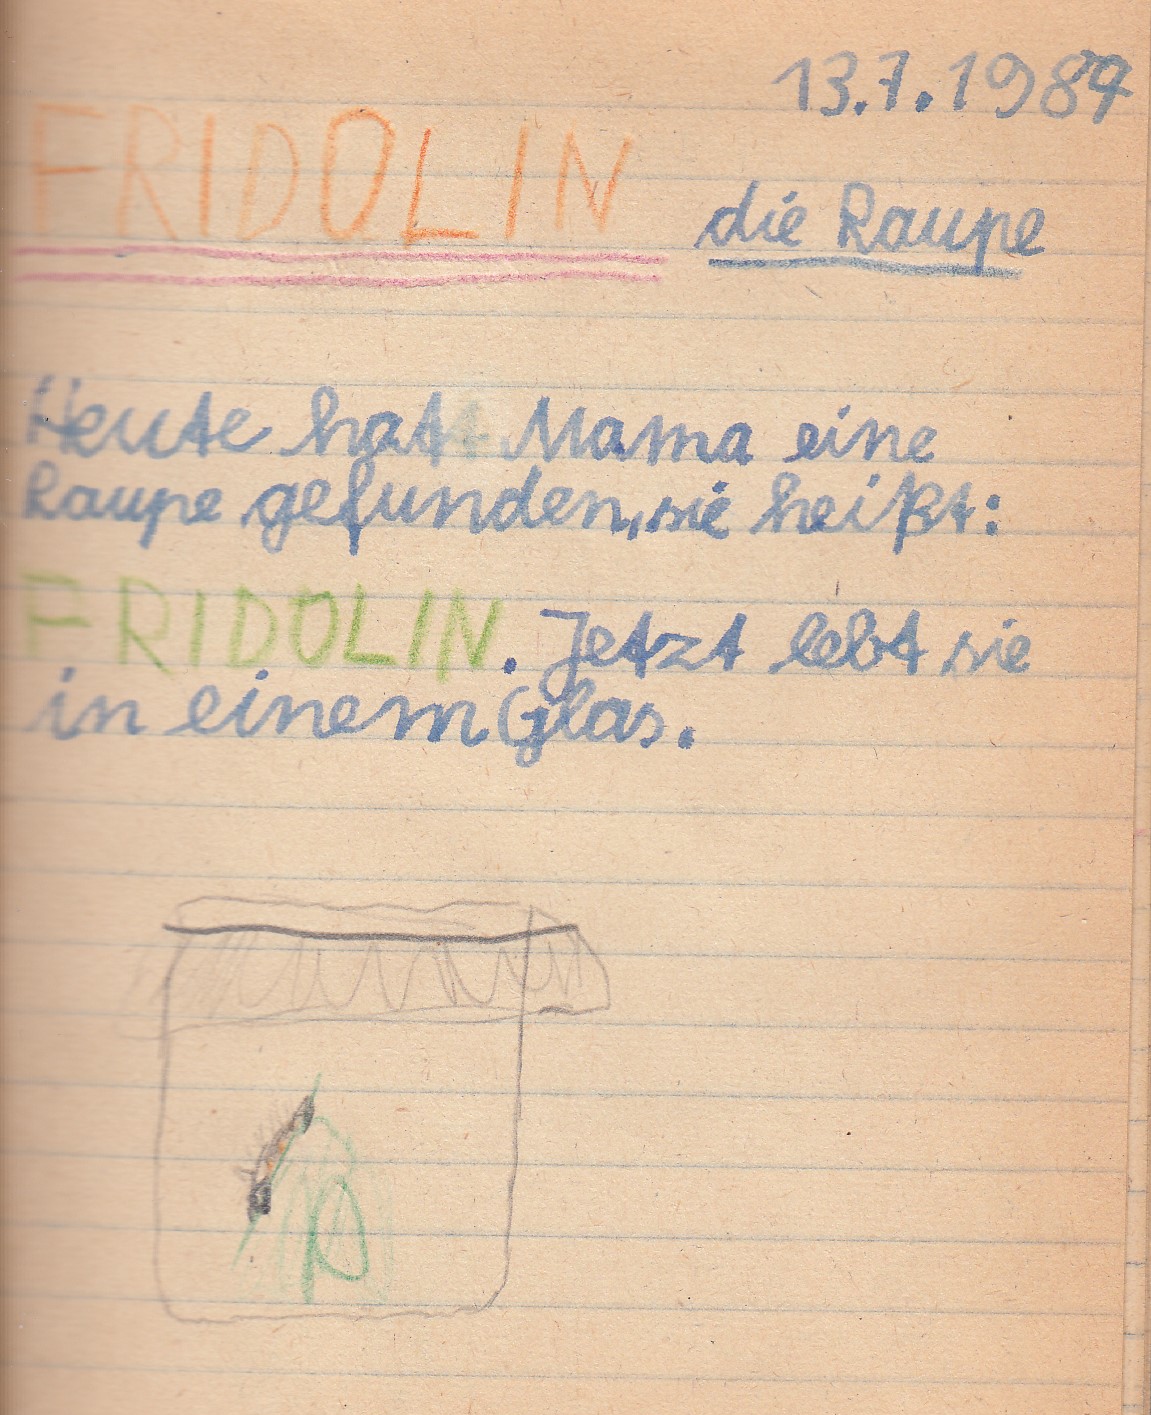 13.7.1989
FRIDOLIN die Raupe
Heute hat Mama eine
Raupe gefunden, sie heißt:
FRIDOLIN. Jetzt lebt sie
in einem Glas.